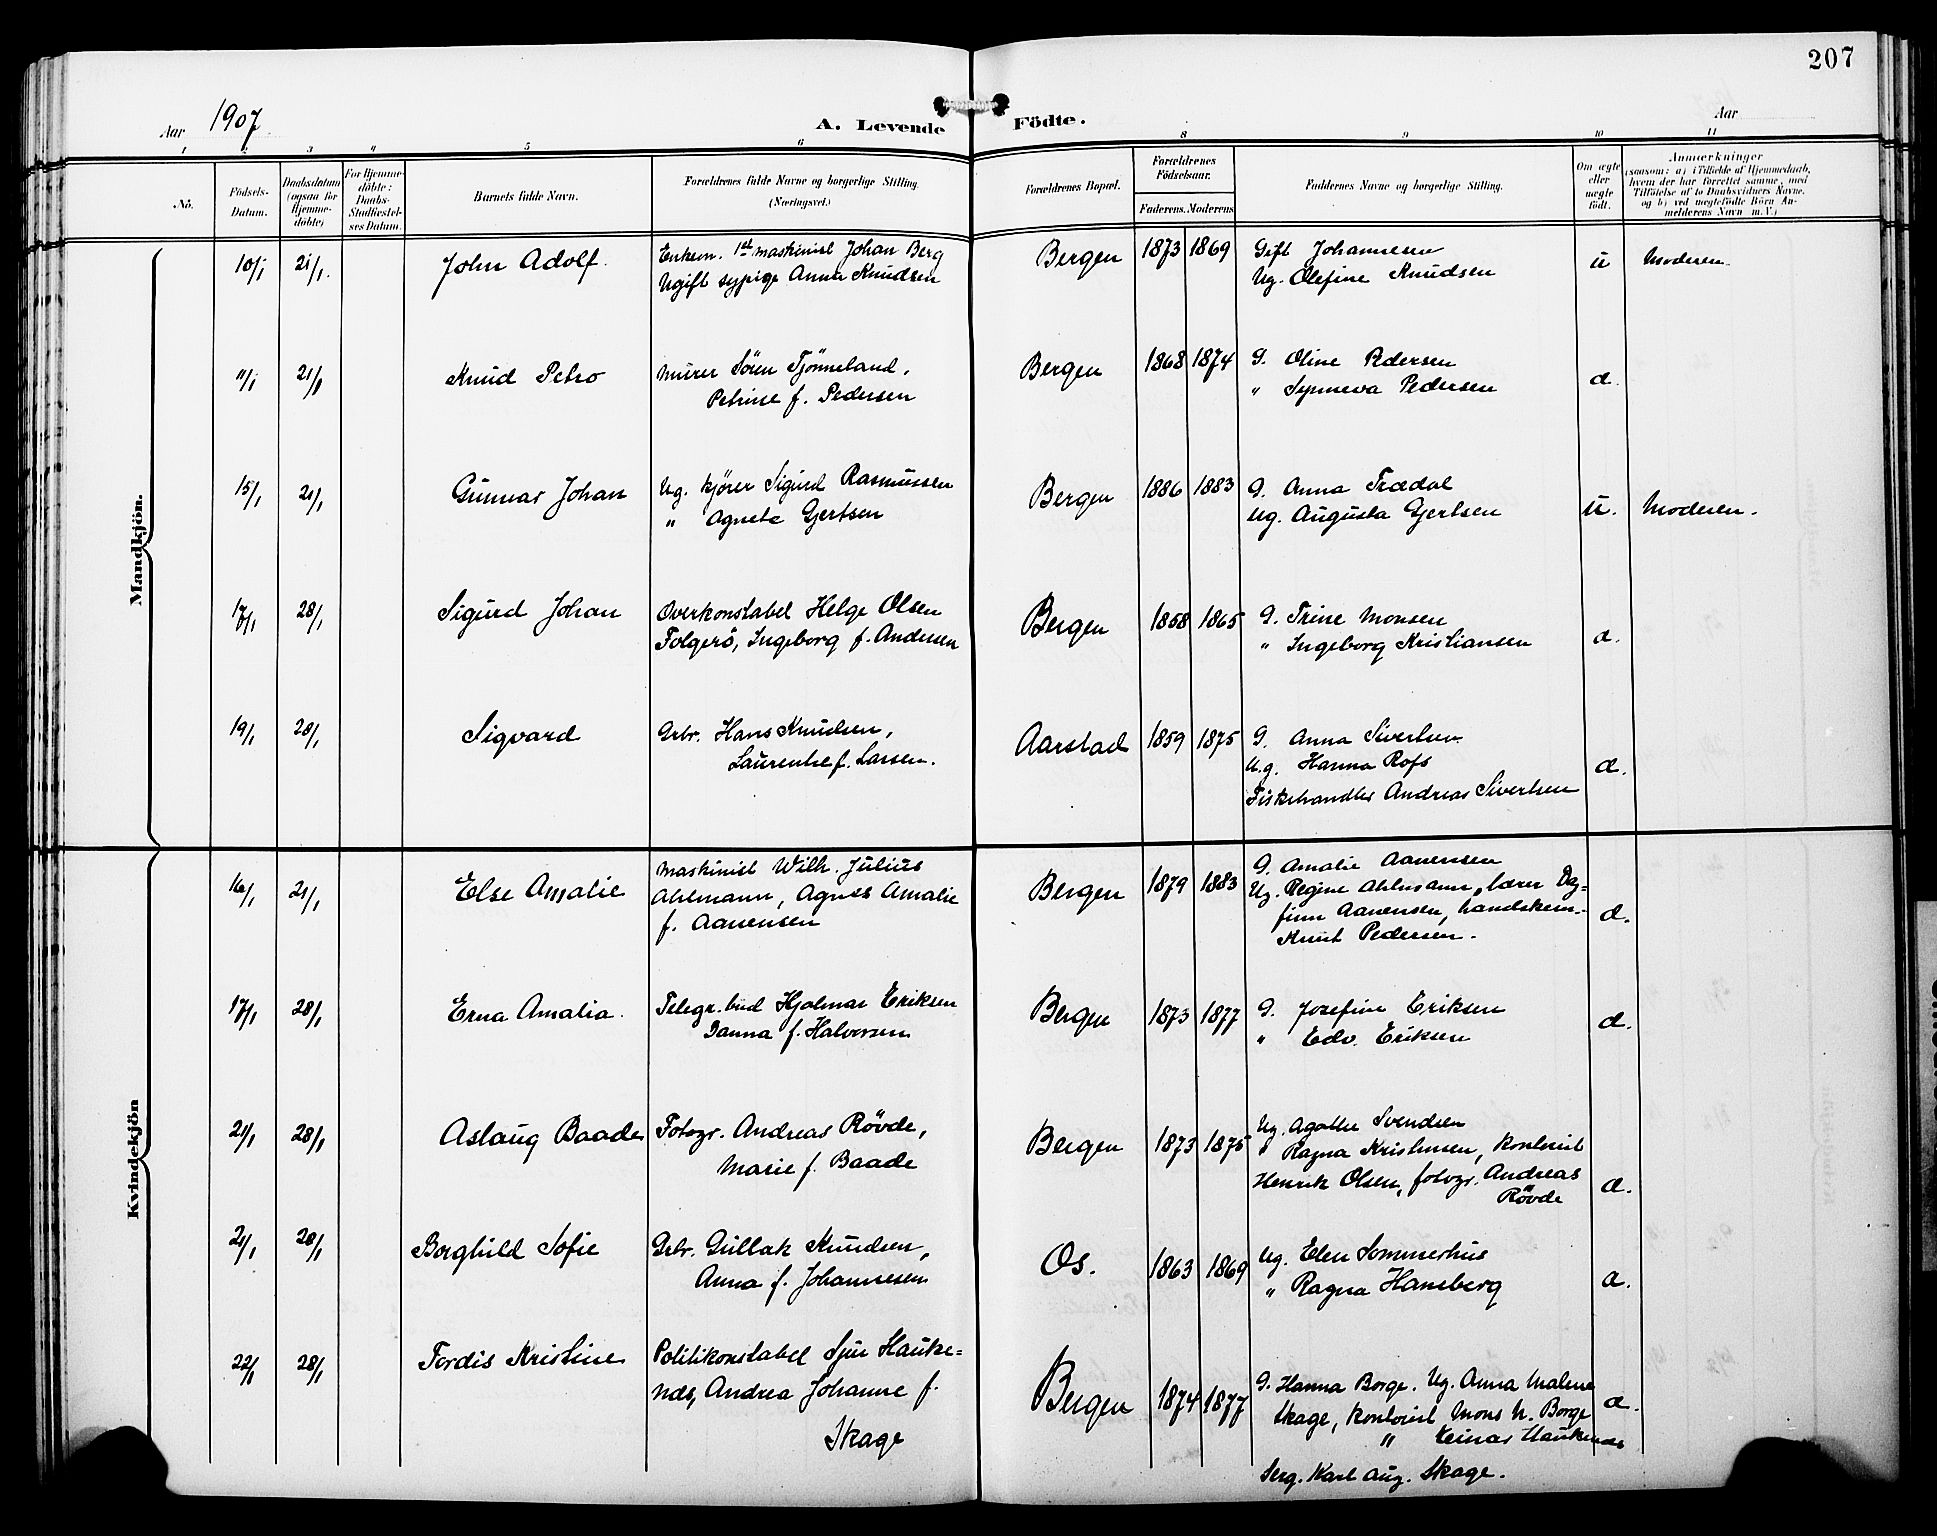 207
Aar 1907
A. Levende Födte.
Aar
1 2 3 4 5 6 8 9 10 11
No.
Födsels-
Datum.
Daabsdatum
(ogsaa for
Hjemme-
döbte)
For Hjemme-
döbte:
Daabs-
Stadfæstel-
ses Datum.
Barnets fulde Navn.
Forældrenes fulde Navne og borgerlige Stilling.
(Næringsvei.)
Forældrenes Bopæl.
Forældrenes
Födselsaar.
Faderens. Moderens.
Faddernes Navne og borgerlige Stilling.
Om ægte
eller
uægte
födt.
Anmærkninger
(saasom: a) i Tilfælde af Hjemmedaab,
hvem der har forrettet samme, med
Tilföielse af to Daabsvidners Navne,
og b) ved uegtefödte Börn An-
melderens Navn m. V.)
Mandkjön.
10/1 21/1. John Adolf. Enkem. 1st maskinist Johan Berg
Ugift sypige Anna Knudsen
Bergen 1873 1869 Gift Johannesen
Ug. Olefine Knudsen
u Moderen.
11/1 21/1 Knud Petro Murer Sören Tjönneland,
Petrine f. Pedersen
Bergen 1868 1874 G. Oline Pedersen
" Synneva Pedersen
æ.
15/1 21/1 Gunnar Johan Ug. kjörer Sigurd Rasmussen
" Agnete Gjertsen
Bergen 1886 1883 G. Anna Trædal
Ug. Augusta Gjertsen
u. Moderen.
17/1 28/1 Sigurd Johan Overkonstabel Helge Olsen
Folgerö, Ingeborg f. Andersen
Bergen 1858 1865 G. Trine Monsen
" Ingeborg Kristiansen
æ.
19/1 28/1 Sigvard Arbr. Hans Knudsen,
Laurentse f. Larsen.
Aarstad 1859 1875 G. Anna Sivertsen
U.g. Hanna Rofs
Fiskehandler Andreas Sivertsen
æ.
Kvindekjön
16/1 21/1 Else Amalie Maskinist Wilh. Julius
Ahlmann, Agnes Amalie
f. Aanensen
Bergen 1879 1883 G. Amalie Aanensen
Ug. Regine Ahlmann, lærer Dag-
finn Aanensen, handskem.
Knut Pedersen.
æ.
17/1 28/1 Erna Amalia. Telegr.bud Hjalmar Eriksen
Danna f. Halvorsen
Bergen 1873 1877 G. Josefine Eriksen
" Edv. Eriksen
æ.
21/1 28/1 Aslaug Baade Fotogr. Andreas Rövde,
Marie f. Baade
Bergen 1873 1875 Ug. Agathe Svendsen
" Ragna Kristensen, kontorist
Henrik Olsen, fotogr. Andreas
Rövde
æ.
21/1 28/1 Borghild Sofie Arbr. Gullak Knudsen,
Anna f. Johannesen
Os. 1863 1869 Ug. Elen Sommerhus
" Ragna Hansberg
æ.
22/1 28/1 Tordis Kristine Politikonstabel Sjur Hauke-
næs, Andrea Johanne f.
Skage
Bergen 1874 1877 G. Hanna Borge. Ug. Anna Malene
Skage, kontorist Mons N. Borge
" Leinar Haukenæs
Serg. Karl Aug. Skage.
æ.